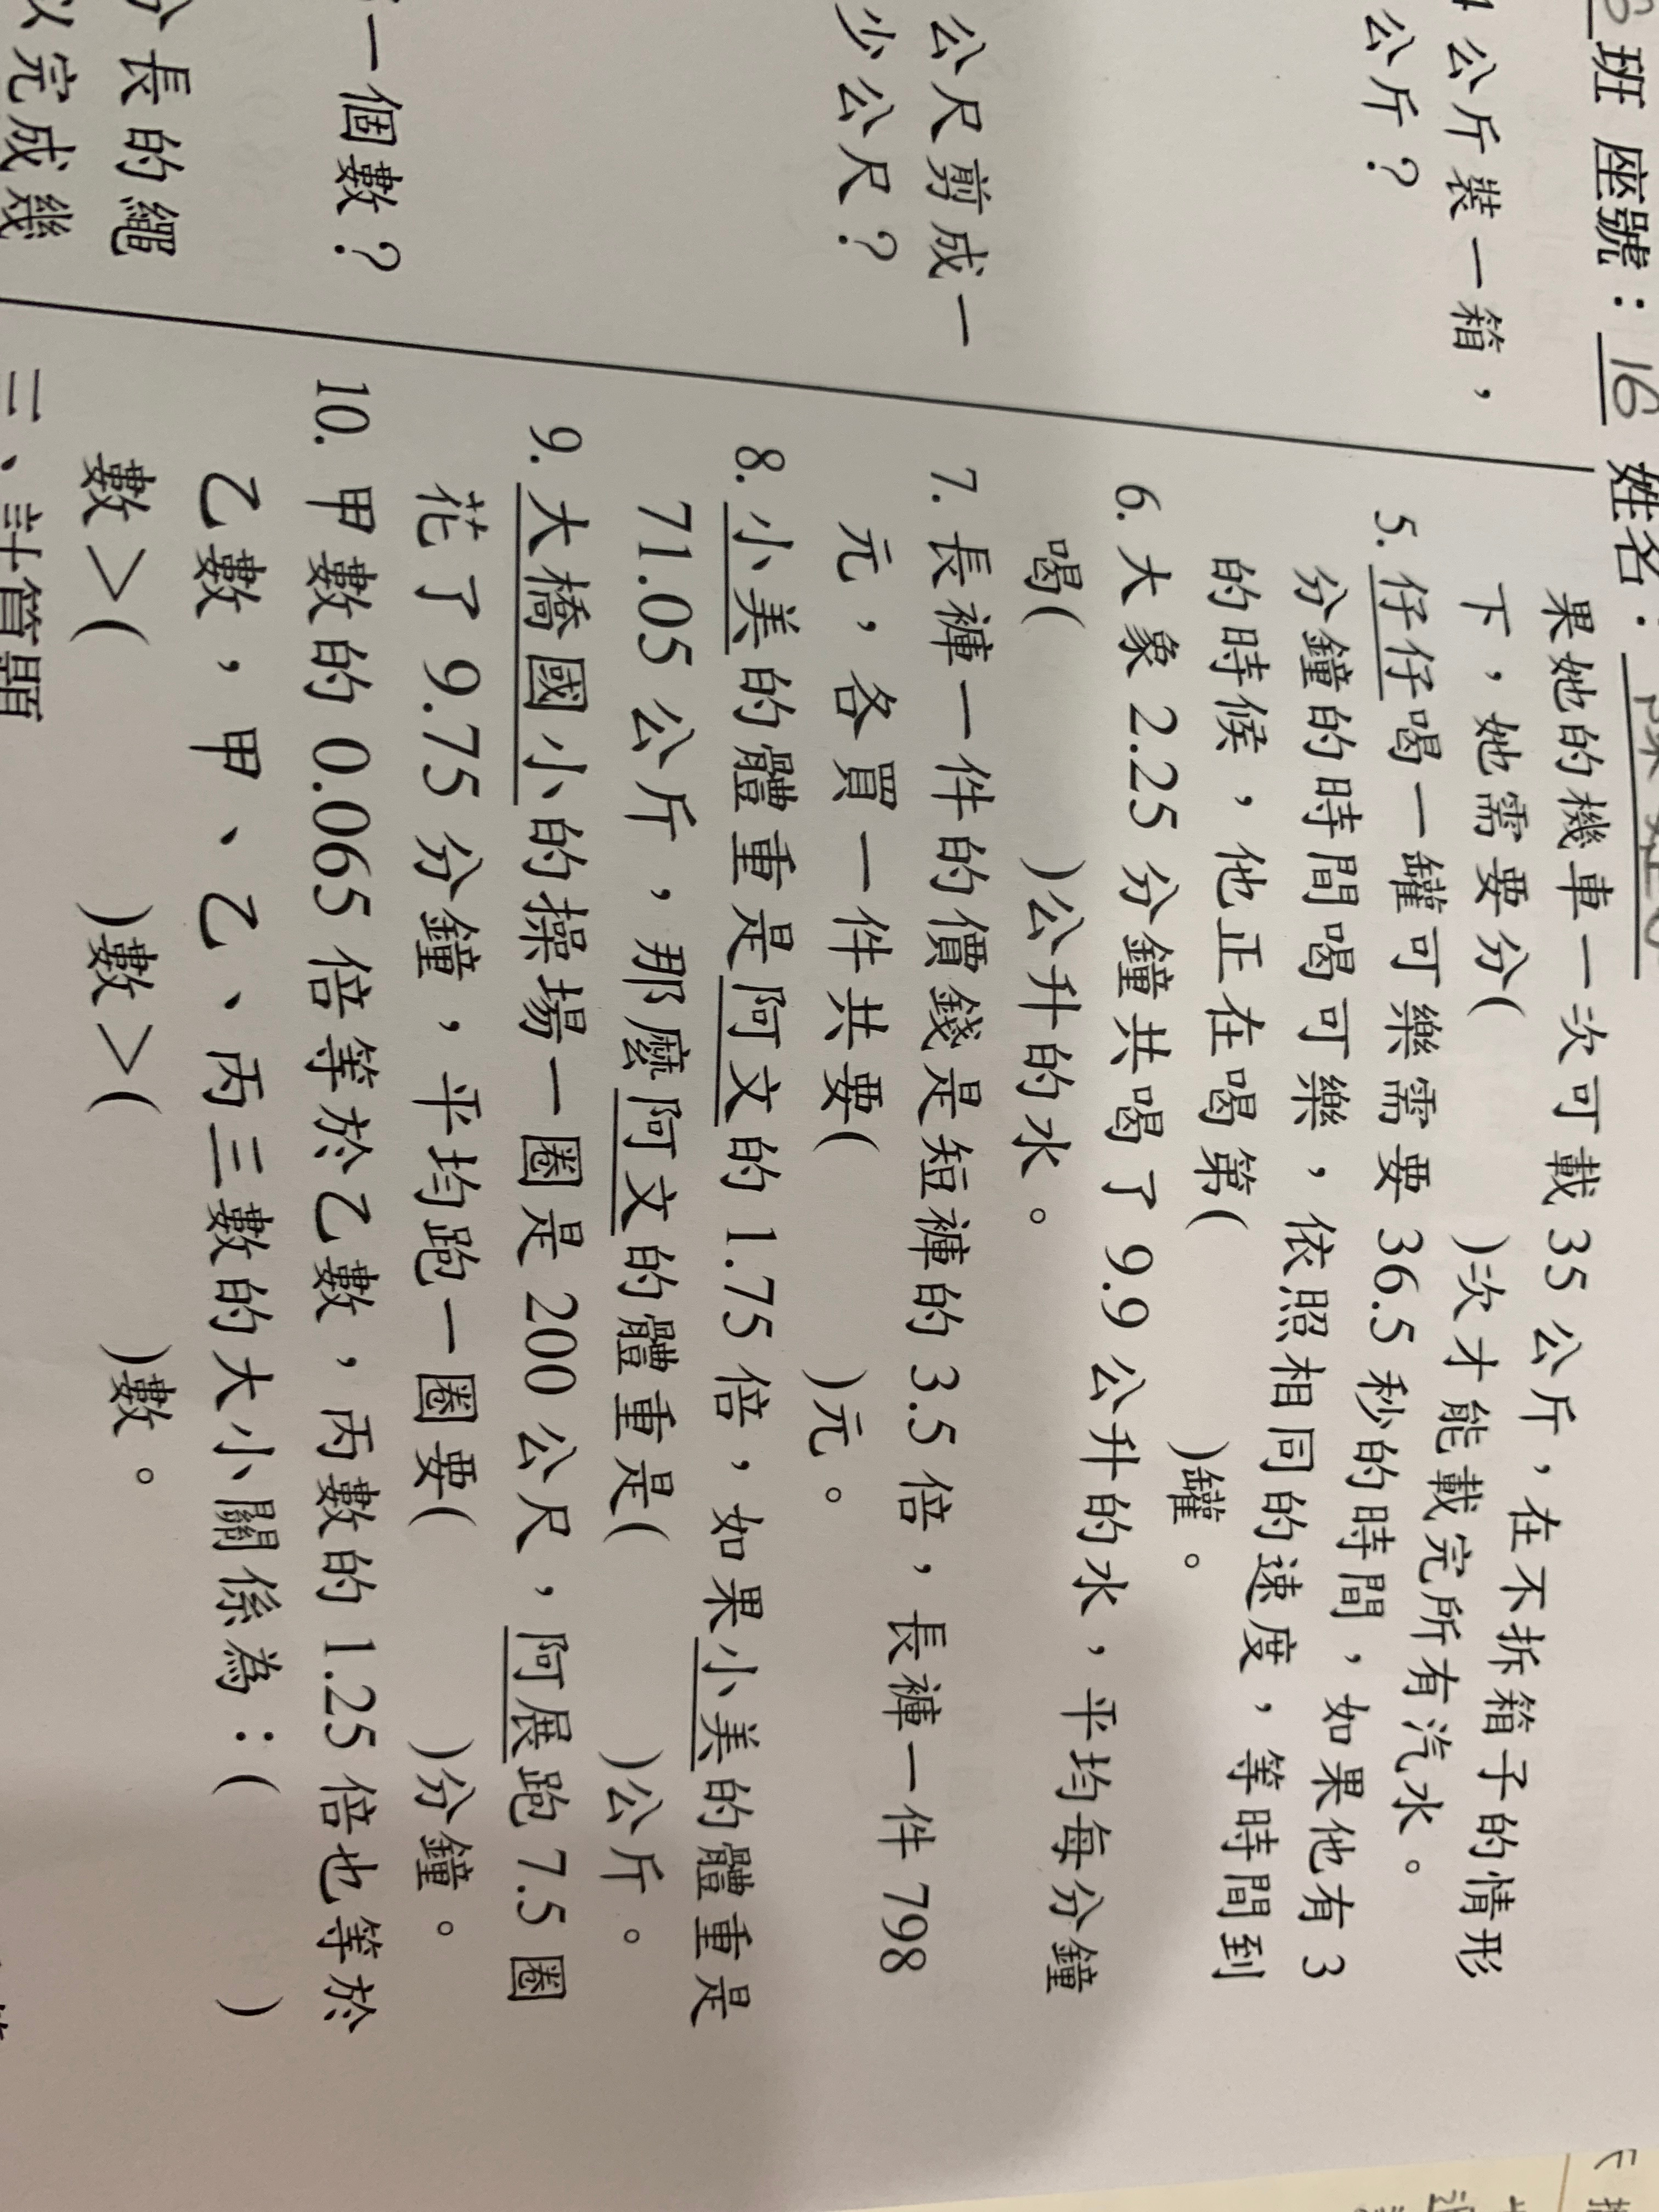 班 座號：16 姓名：
公斤裝一箱，
公斤？
公尺剪成一
少公尺？
一個數？
分長的繩
以完成幾
果她的機車一次可載 35 公斤，在不拆箱子的情形
下，她需要分( )次才能載完所有汽水。
5. 仔仔喝一罐可樂需要 36.5 秒的時間，如果他有 3
分鐘的時間喝可樂，依照相同的速度，等時間到
的時候，他正在喝第( )罐。
6. 大象 2.25 分鐘共喝了 9.9 公升的水，平均每分鐘
喝( )公升的水。
7. 長褲一件的價錢是短褲的 3.5 倍，長褲一件 798
元，各買一件共要( )元。
8. 小美的體重是阿文的 1.75 倍，如果小美的體重是
71.05 公斤，那麼阿文的體重是( )公斤。
9. 大橋國小的操場一圈是 200 公尺，阿展跑 7.5 圈
花了 9.75 分鐘，平均跑一圈要( )分鐘。
10. 甲數的 0.065 倍等於乙數，丙數的 1.25 倍也等於
乙數，甲、乙、丙三數的大小關係為：( )
數＞( )數＞( )數。
三、計算題